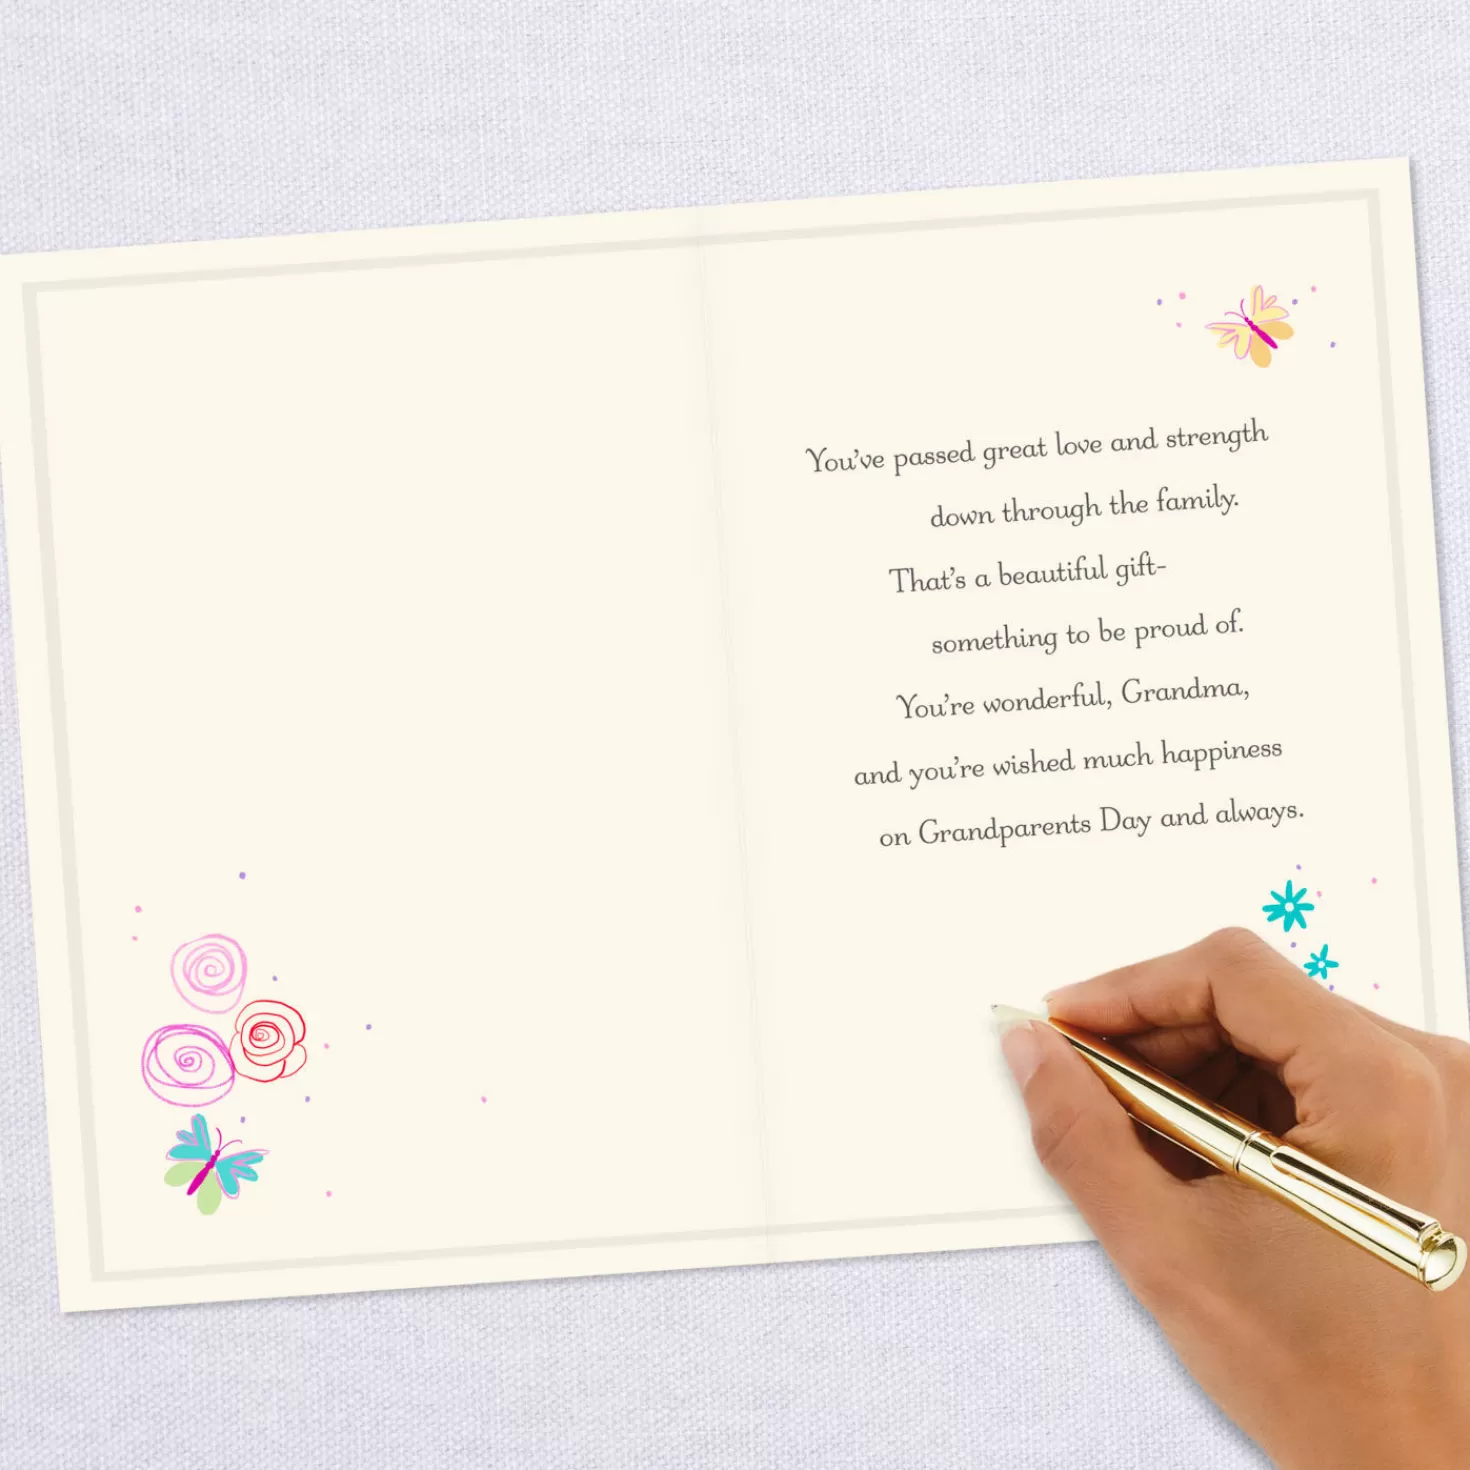 You've passed great love and strength
down through the family.
That's a beautiful gift-
something to be proud of.
You're wonderful, Grandma,
and you're wished much happiness
on Grandparents Day and always.